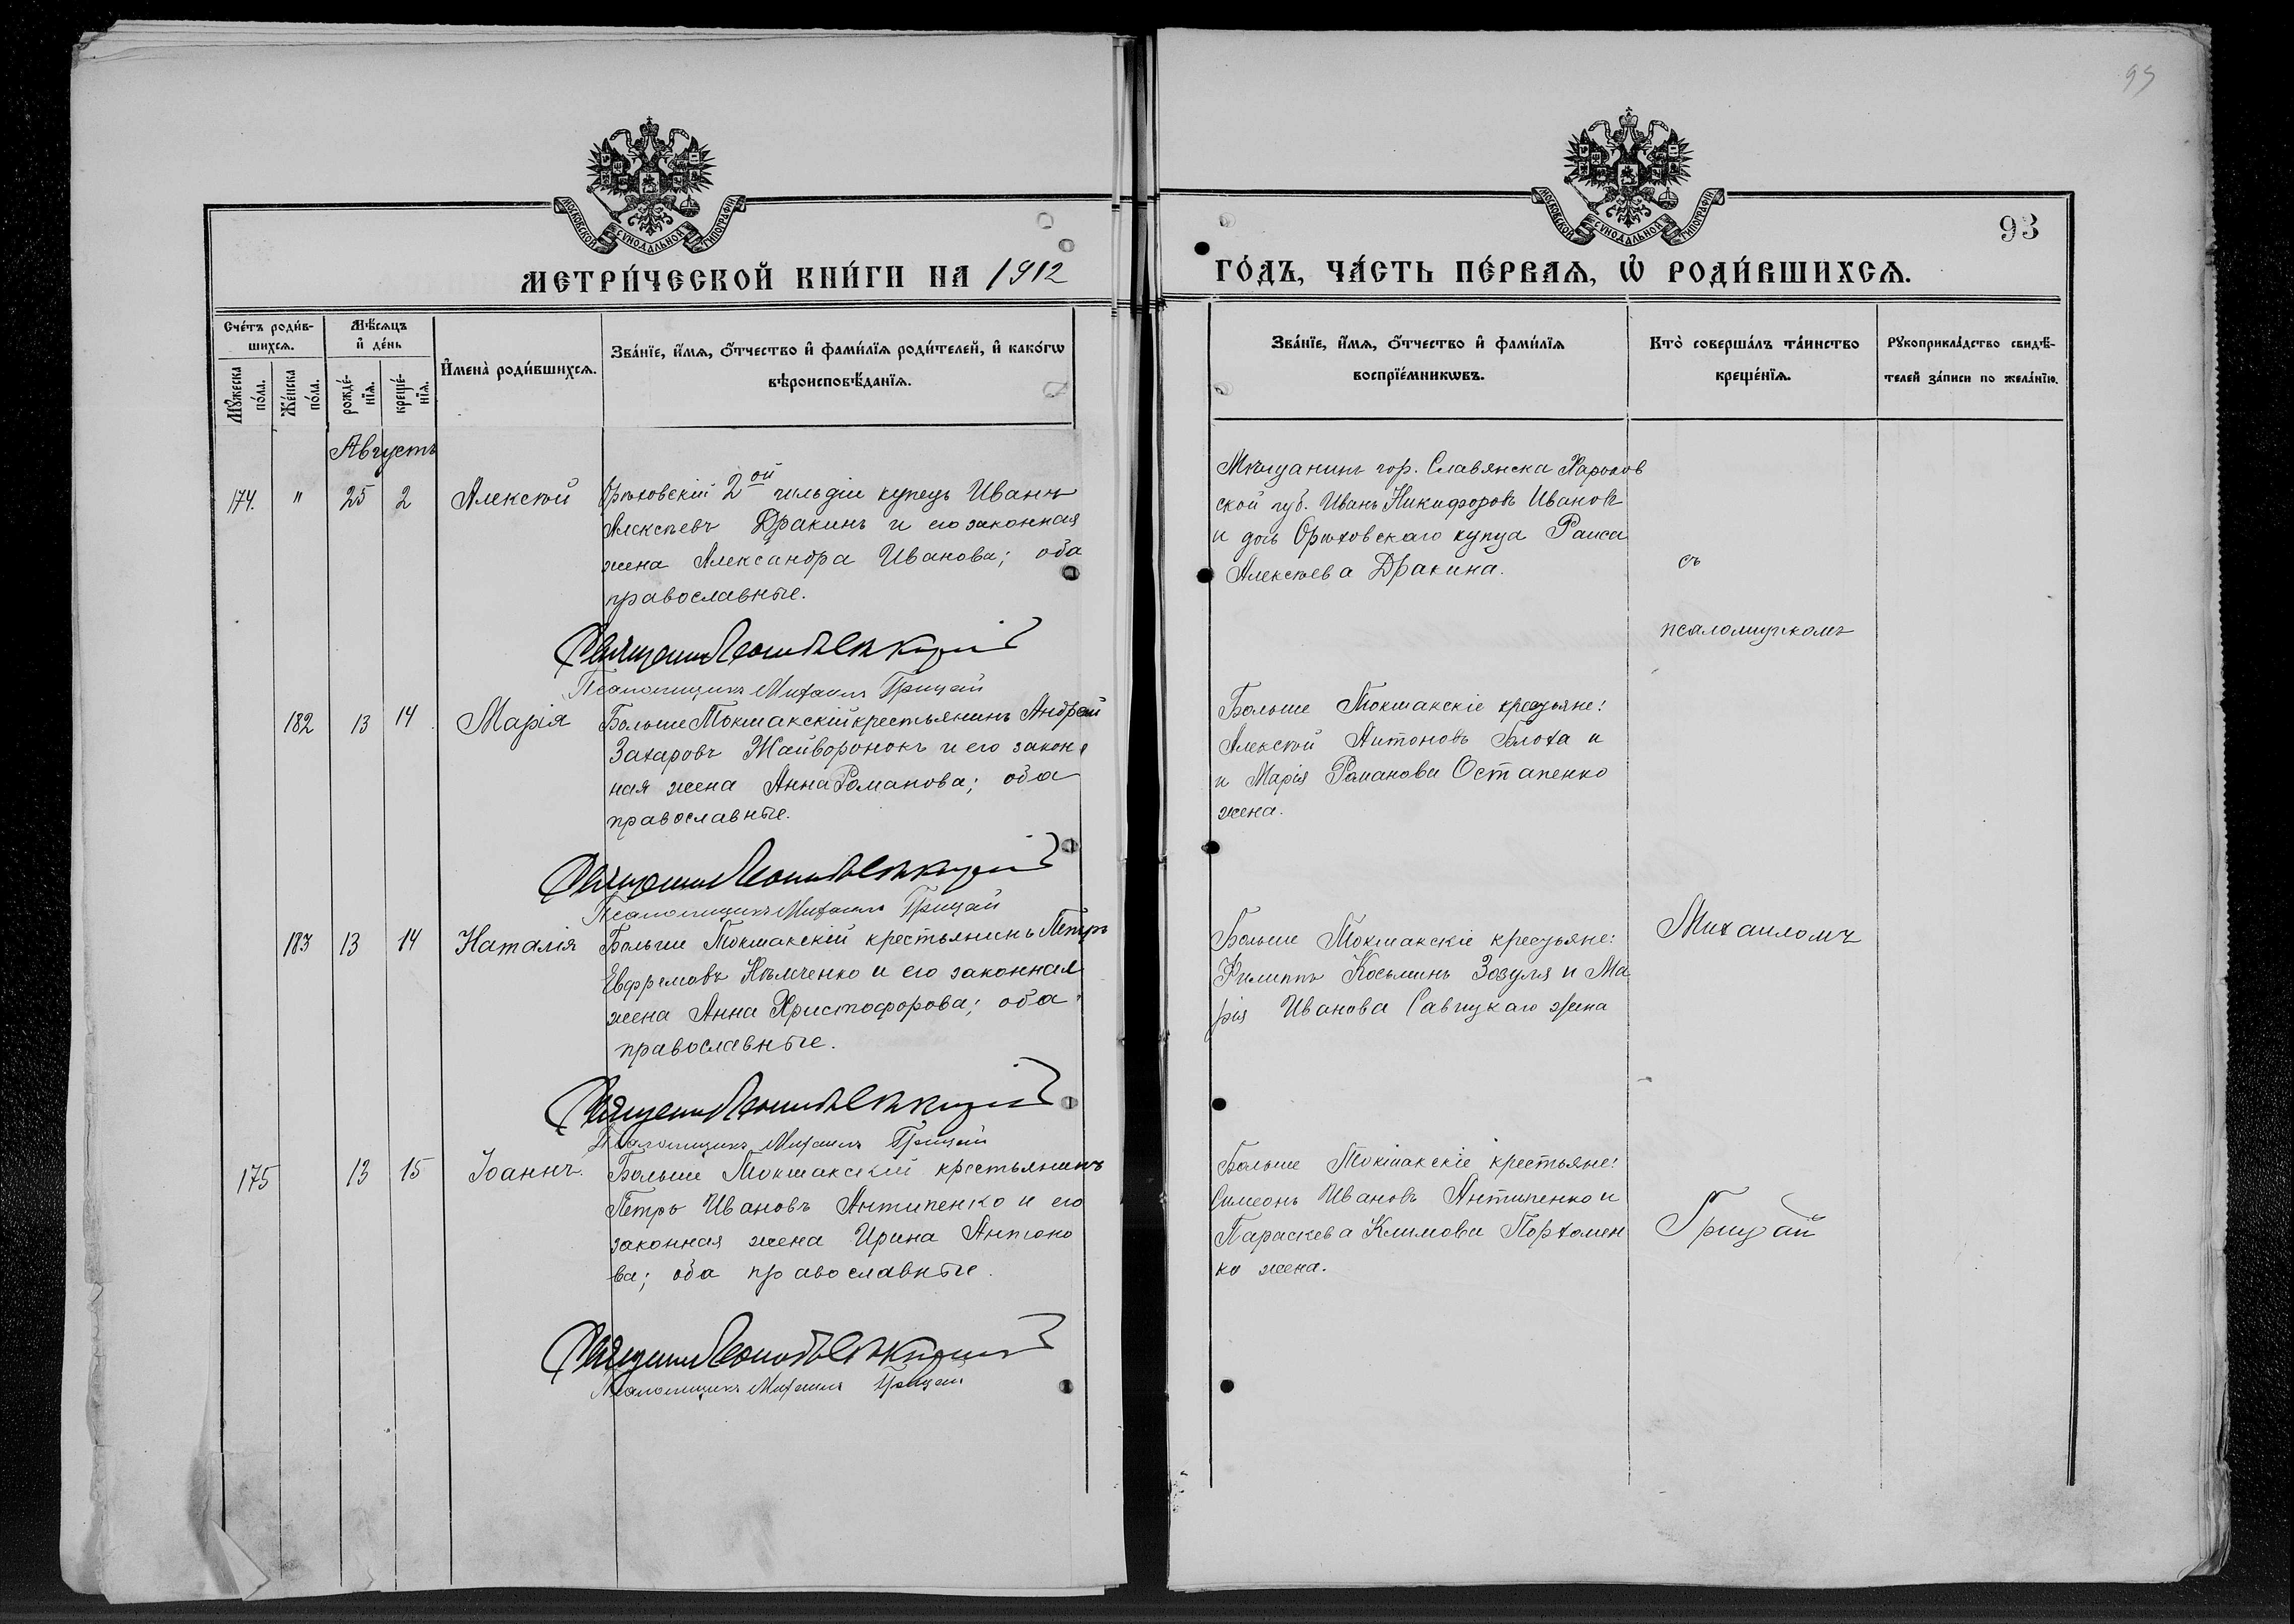 99
93
МОСКОВСКОЙ СѴНОДАЛЬНОЙ ТИПОГРАФІИ
МОСКОВСКОЙ СѴНОДАЛЬНОЙ ТИПОГРАФІИ
МЕТРИ́ЧЕСКОЙ КНИ́ГИ НА 1912
ГО́ДЪ, ЧА́СТЬ ПЕ́РВАѦ, Ѡ҆ РОДИ́ВШИХСѦ.
Сче́тъ роди́в-
шихсѧ.
Мꙋ́жеска по́ла.
Же́нска по́ла.
Мѣ́сѧцъ
и҆ де́нь
рожде́-
нїѧ.
креще́-
нїѧ.
И҆мена̀ роди́вшихсѧ.
Зва́нїе, и҆́мѧ, ѻ҆́тчество и҆ фами́лїѧ роди́телей, и҆ како́гѡ
вѣроисповѣ́данїѧ.
Зва́нїе, и҆́мѧ, ѻ҆́тчество и҆ фами́лїѧ
воспрїе́мникѡвъ.
Кто̀ соверша́лъ та́инство
креще́нїѧ.
Рꙋкоприкла́дство свидѣ́-
телей за́писи по жела́нїю.
Августъ
174. " 25 2 Алексѣй
Орѣховскій 2ой гильдіи купецъ Иванъ
Алексѣевъ Дракинъ и его законная
жена Александра Иванова; оба
православные.
Мѣщанинъ гор. Славянска Харьков
ской губ. Иванъ Никифоровъ Ивановъ
и дочь Орѣховскаго купца Раиса
Алексѣева Дракина.
съ
псаломщикомъ
Псаломщикъ Михаилъ Грицай
182 13 14 Марія
Больше Токмакскій крестьянинъ Андрей
Захаровъ Жайворонокъ и его закон
ная жена Анна Романова; оба
православные.
Больше Токмакскіе крестьяне:
Алексѣй Антоновъ Блоха и
и Марія Романова Остапенко
жена.
Псаломщикъ Михаилъ Грицай
183 13 14 Наталія
Больше Токмакскій крестьянинъ Петръ
Ефремовъ Нѣмченко и его законная
жена Анна Христофорова; оба
православные.
Больше Токмакскіе крестьяне:
Филиппъ Косьминъ Зозуля и Ма
рія Иванова Савицкаго жена
Михаиломъ
Псаломщикъ Михаилъ Грицай
175 13 15 Іоаннъ.
Больше Токмакскій крестьянинъ
Петръ Ивановъ Антипенко и его
законная жена Ирина Антоно
ва; оба православные.
Больше Токмакскіе крестьяне:
Симеонъ Ивановъ Антипенко и
Параскева Климова Пархомен
ко жена.
Грицай
Псаломщикъ Михаилъ Грицай